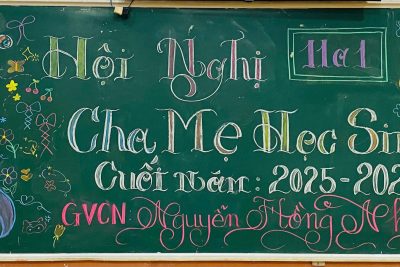 Hội Nghị 11a1
Cha Mẹ Học
Cuối năm: 2025-
GVCN: Nguyễn Hồng